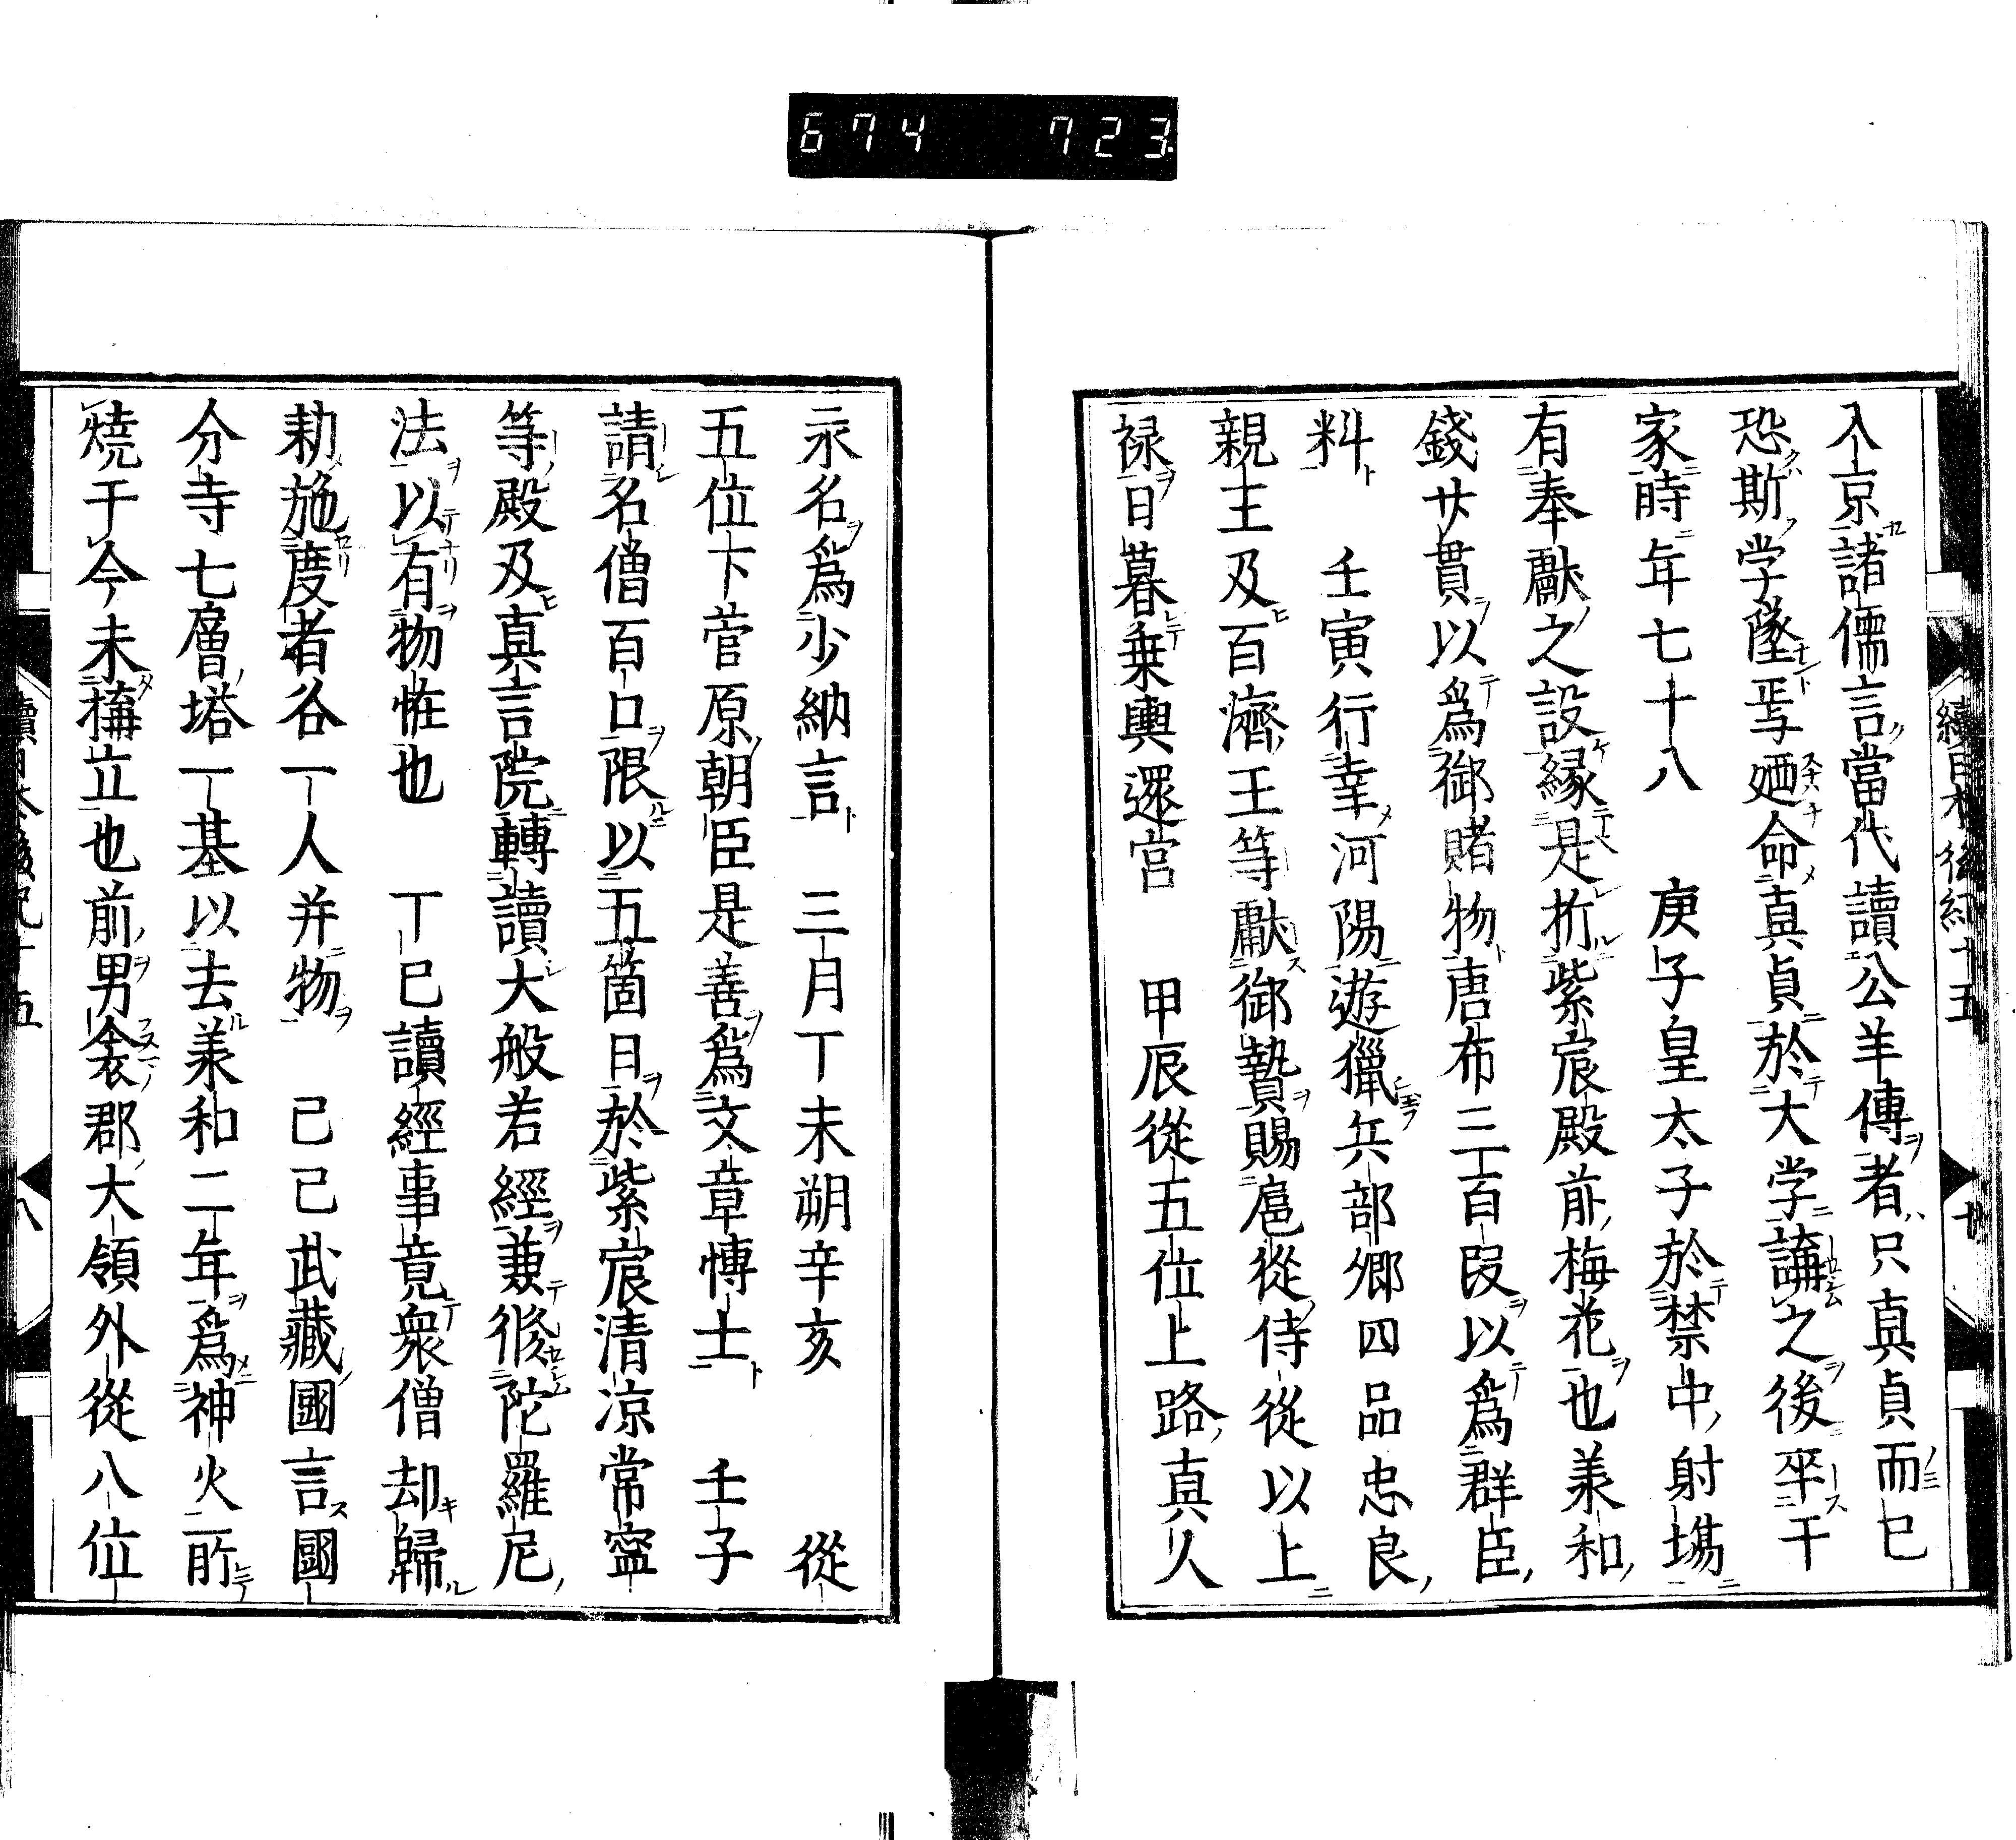 674 723
續日本後紀十五
十
入京諸儒言當代讀公羊傳者只真貞而已
恐斯学墜焉廼命真貞於大学講之後卒于
家時年七十八 庚子皇太子於禁中射場
有奉獻之設縁是折紫宸殿前梅花也羕和
錢廿貫以爲御賭物唐布三百段以爲群臣
料 壬寅行幸河陽遊獵兵部郷四品忠良
親王及百濟王等獻御贄賜扈從侍從以上
禄日暮乗輿還宮 甲辰從五位上路真人
永名爲少納言 三月丁未朔辛亥 從
五位下菅原朝臣是善爲文章博士 壬子
請名僧百口限以五箇日於紫宸清凉常寧
等殿及真言院轉讀大般若經兼修陀羅尼
法以有物恠也 丁巳讀經事竟衆僧却歸
勅施度者各一人并物 己巳武藏國言國
分寺七層塔一基以去羕和二年爲神火所
燒于今未構立也前男衾郡大領外從八位
續日本後紀十五
八